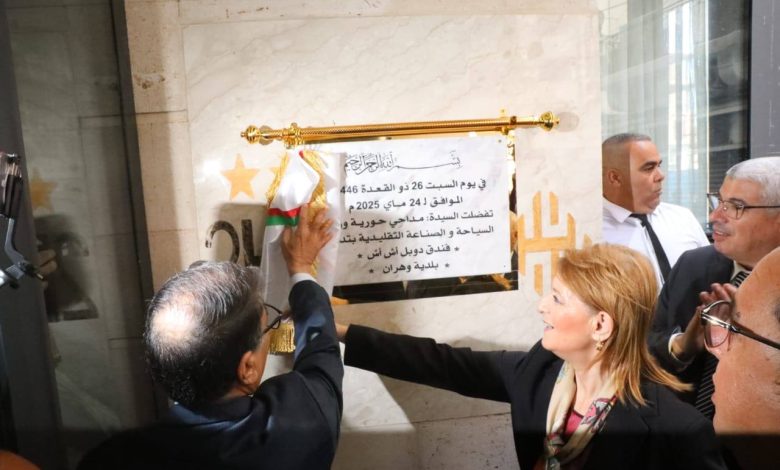 بسم الله الرحمن الرحيم
في يوم السبت 26 ذو القعدة 446
الموافق لـ 24 ماي 2025 م
تفضلت السيدة: مداحي حورية
السياحة و الصناعة التقليدية
* فندق دوبل أش أش *
بلدية وهران *